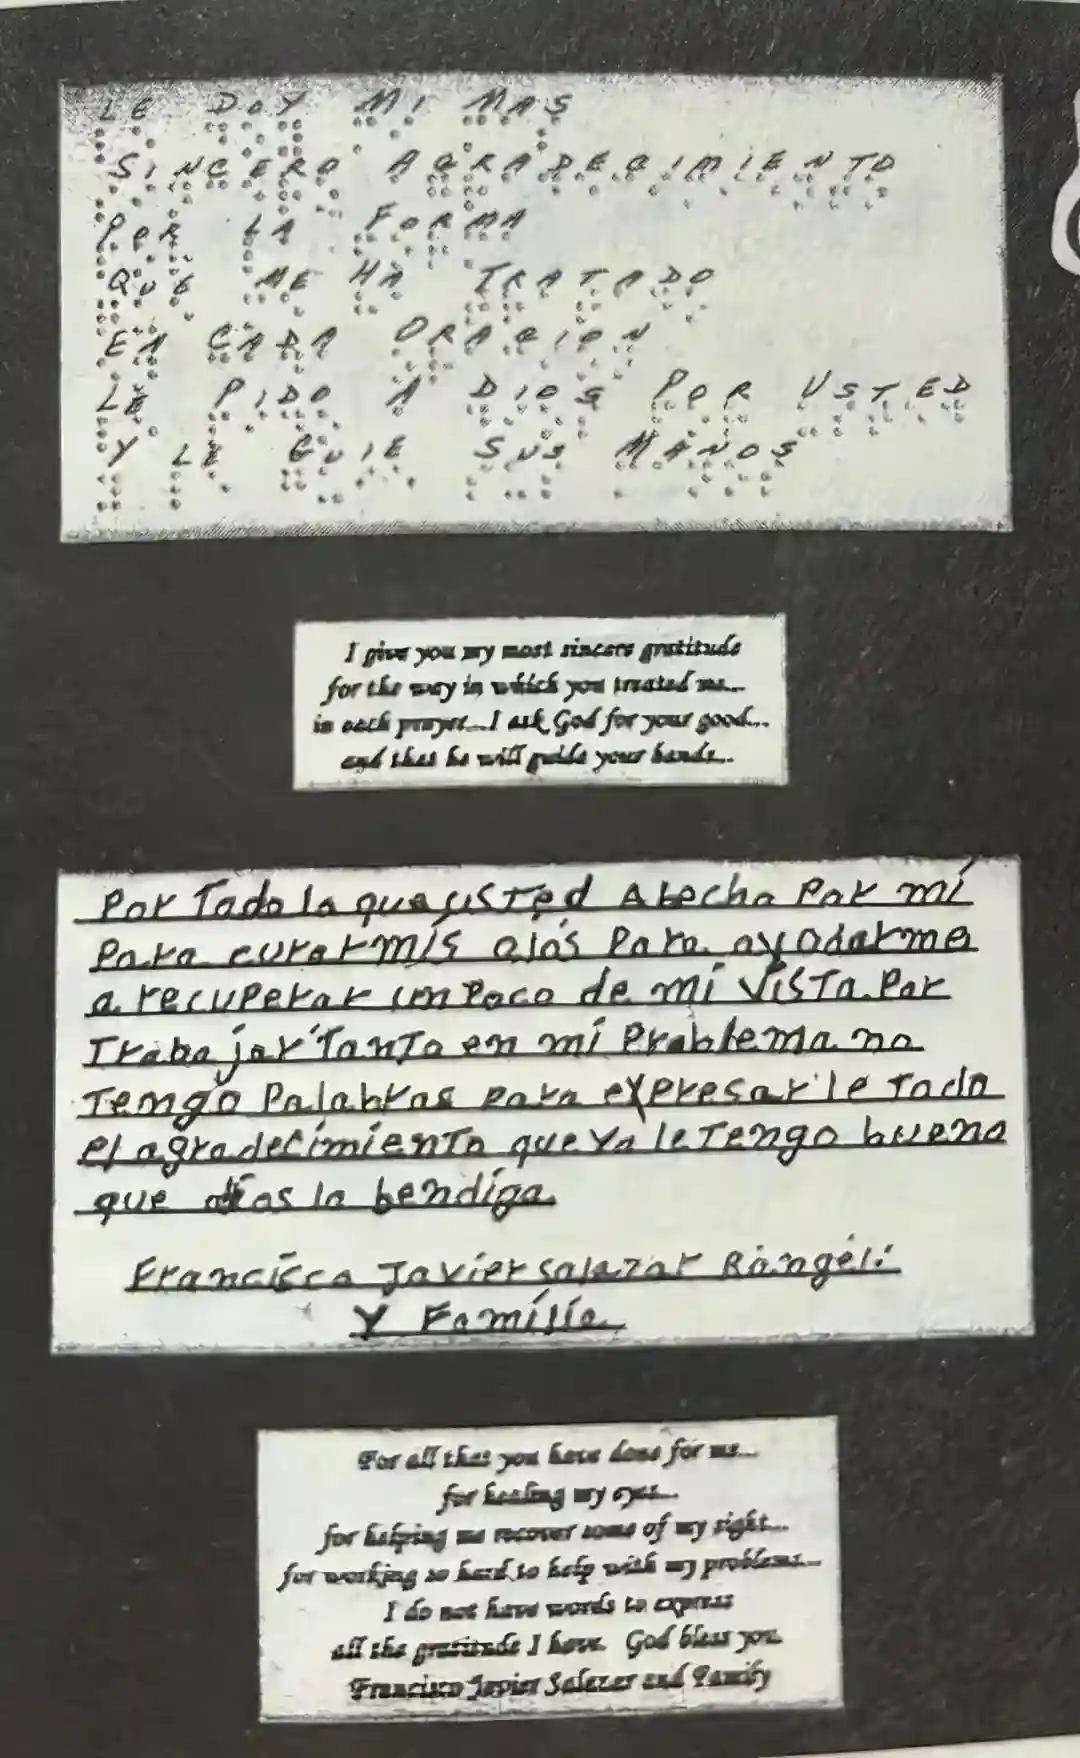 LE DOY MI MAS
SINCERO AGRADECIMIENTO
POR LA FORMA
QUE ME HA TRATADO
EN CADA ORACION
LE PIDO A DIOS POR USTED
Y LE GUIE SUS MANOS
I give you my most sincere gratitude
for the way in which you treated me...
in each prayer...I ask God for your good...
and that he will guide your hands...
Por Todo lo que usTed A hecho Por mí
Para curar mís ojos Para ayodarme
a recuperar un Poco de mi VísTa. Por
Trabajar TanTo en mí Problema no
Tengo Palabras Para expresar le Todo
el agradecímíenTo que Yo le Tengo bueno
que dios lo bendíga.
Francísco Javíer Salazar Rangel
Y Famílía
For all that you have done for me...
for healing my eyes...
for helping me recover some of my sight...
for working so hard to help with my problems...
I do not have words to express
all the gratitude I have. God bless you.
Francisco Javier Salazar and Family